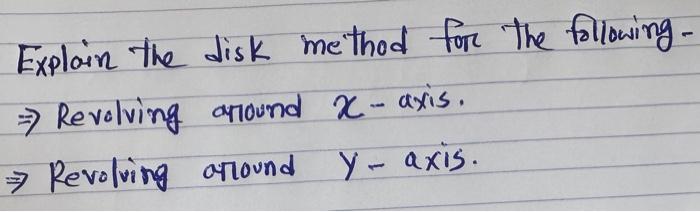 Explain the disk method for the following-
⇒ Revolving around x-axis.
⇒ Revolving around y-axis.